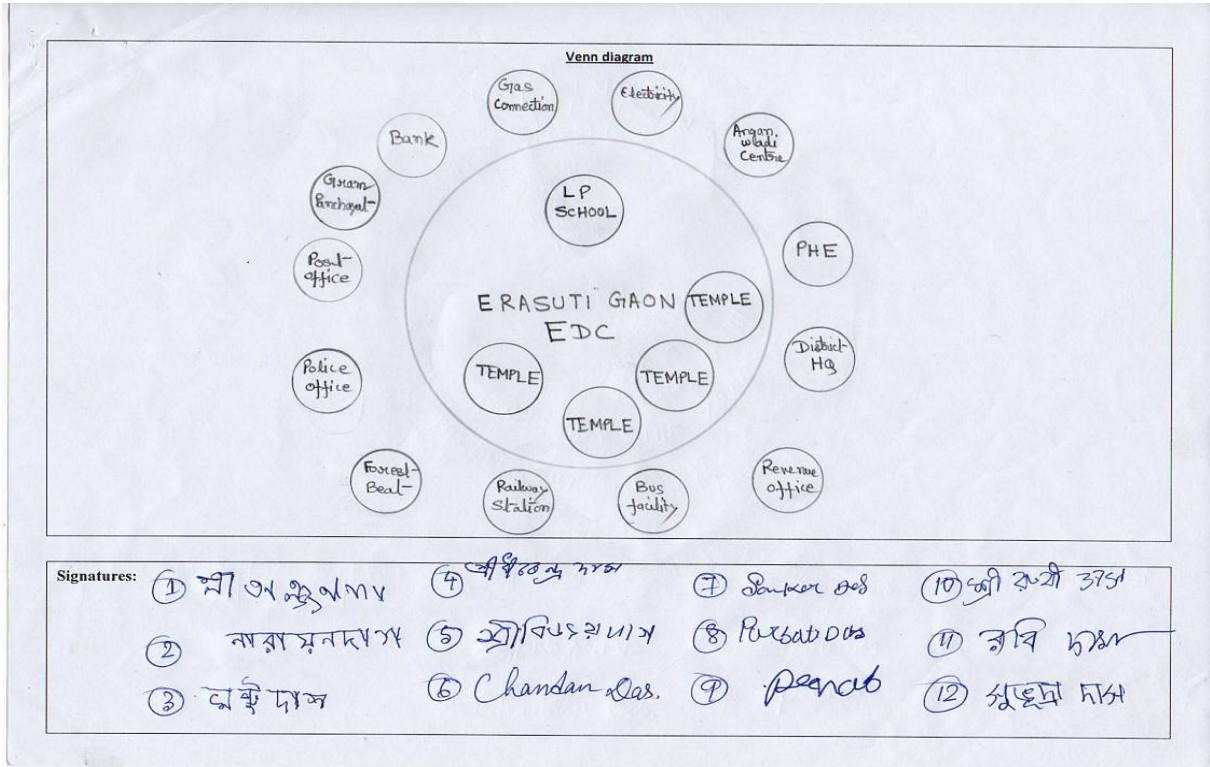 Venn diagram
Gas
Connection
Electricity
Bank
Angan.
wladi
Centre
Gram
Panchayat
LP
SCHOOL
PHE
Post-
office
ERASUTI GAON
EDC
TEMPLE
District-
HQ
Police
office
TEMPLE
TEMPLE
TEMPLE
Forest-
Beat-
Railway
Station
Bus
facility
Revenue
office
Signatures:
① শ্রী
② নারায়নদাস
③ দাস
④ দাস
⑤ শ্রী দাস
⑥ Chandan Das.
⑦ Sanker Das
⑧ Parbati Das
⑨
⑩ শ্রী
⑪ রবি দাস
⑫ সুভদ্রা দাস